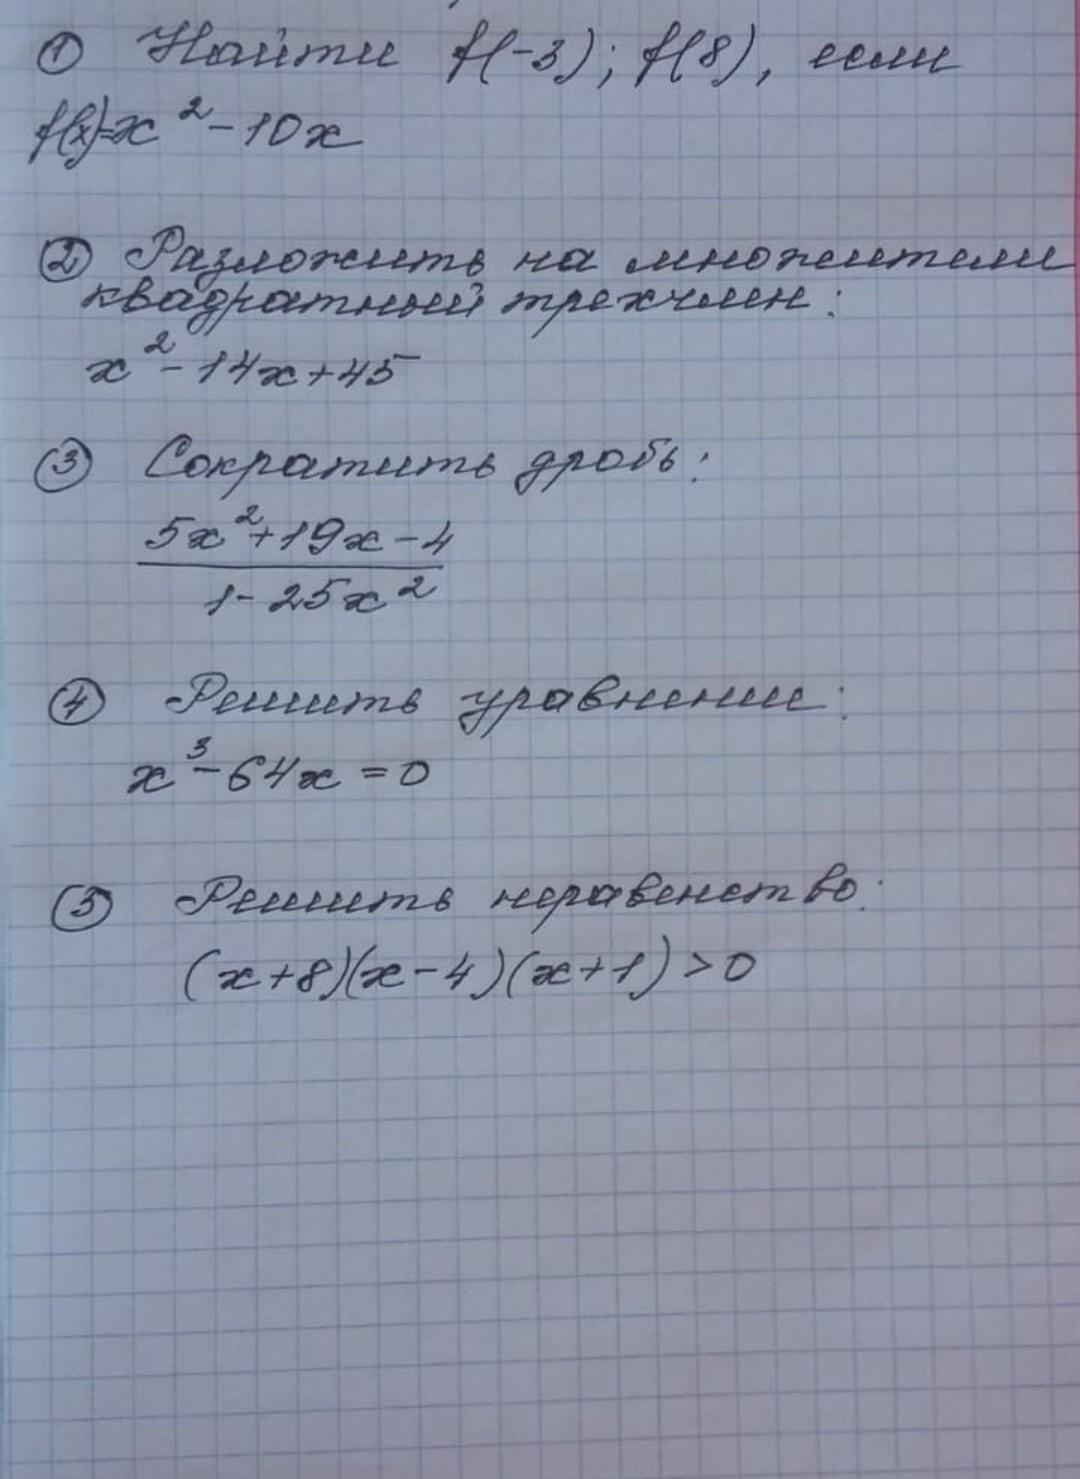 ① Найти f(-3); f(8), если
f(x)=x² - 10x
② Разложить на множители
квадратный трехчлен:
x² - 14x + 45
③ Сократить дробь:
5x² + 19x - 4
1 - 25x²
④ Решить уравнение:
x³ - 64x = 0
⑤ Решить неравенство:
(x+8)(x-4)(x+1) > 0